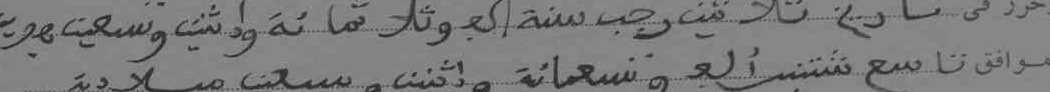 حرر في تاريخ ثلاثين رجب سنة ألف وثلاثمائة واثنين وتسعين هجرية
موافق تاسع شتنبر ألف وتسعمائة واثنين وسبعين ميلادية